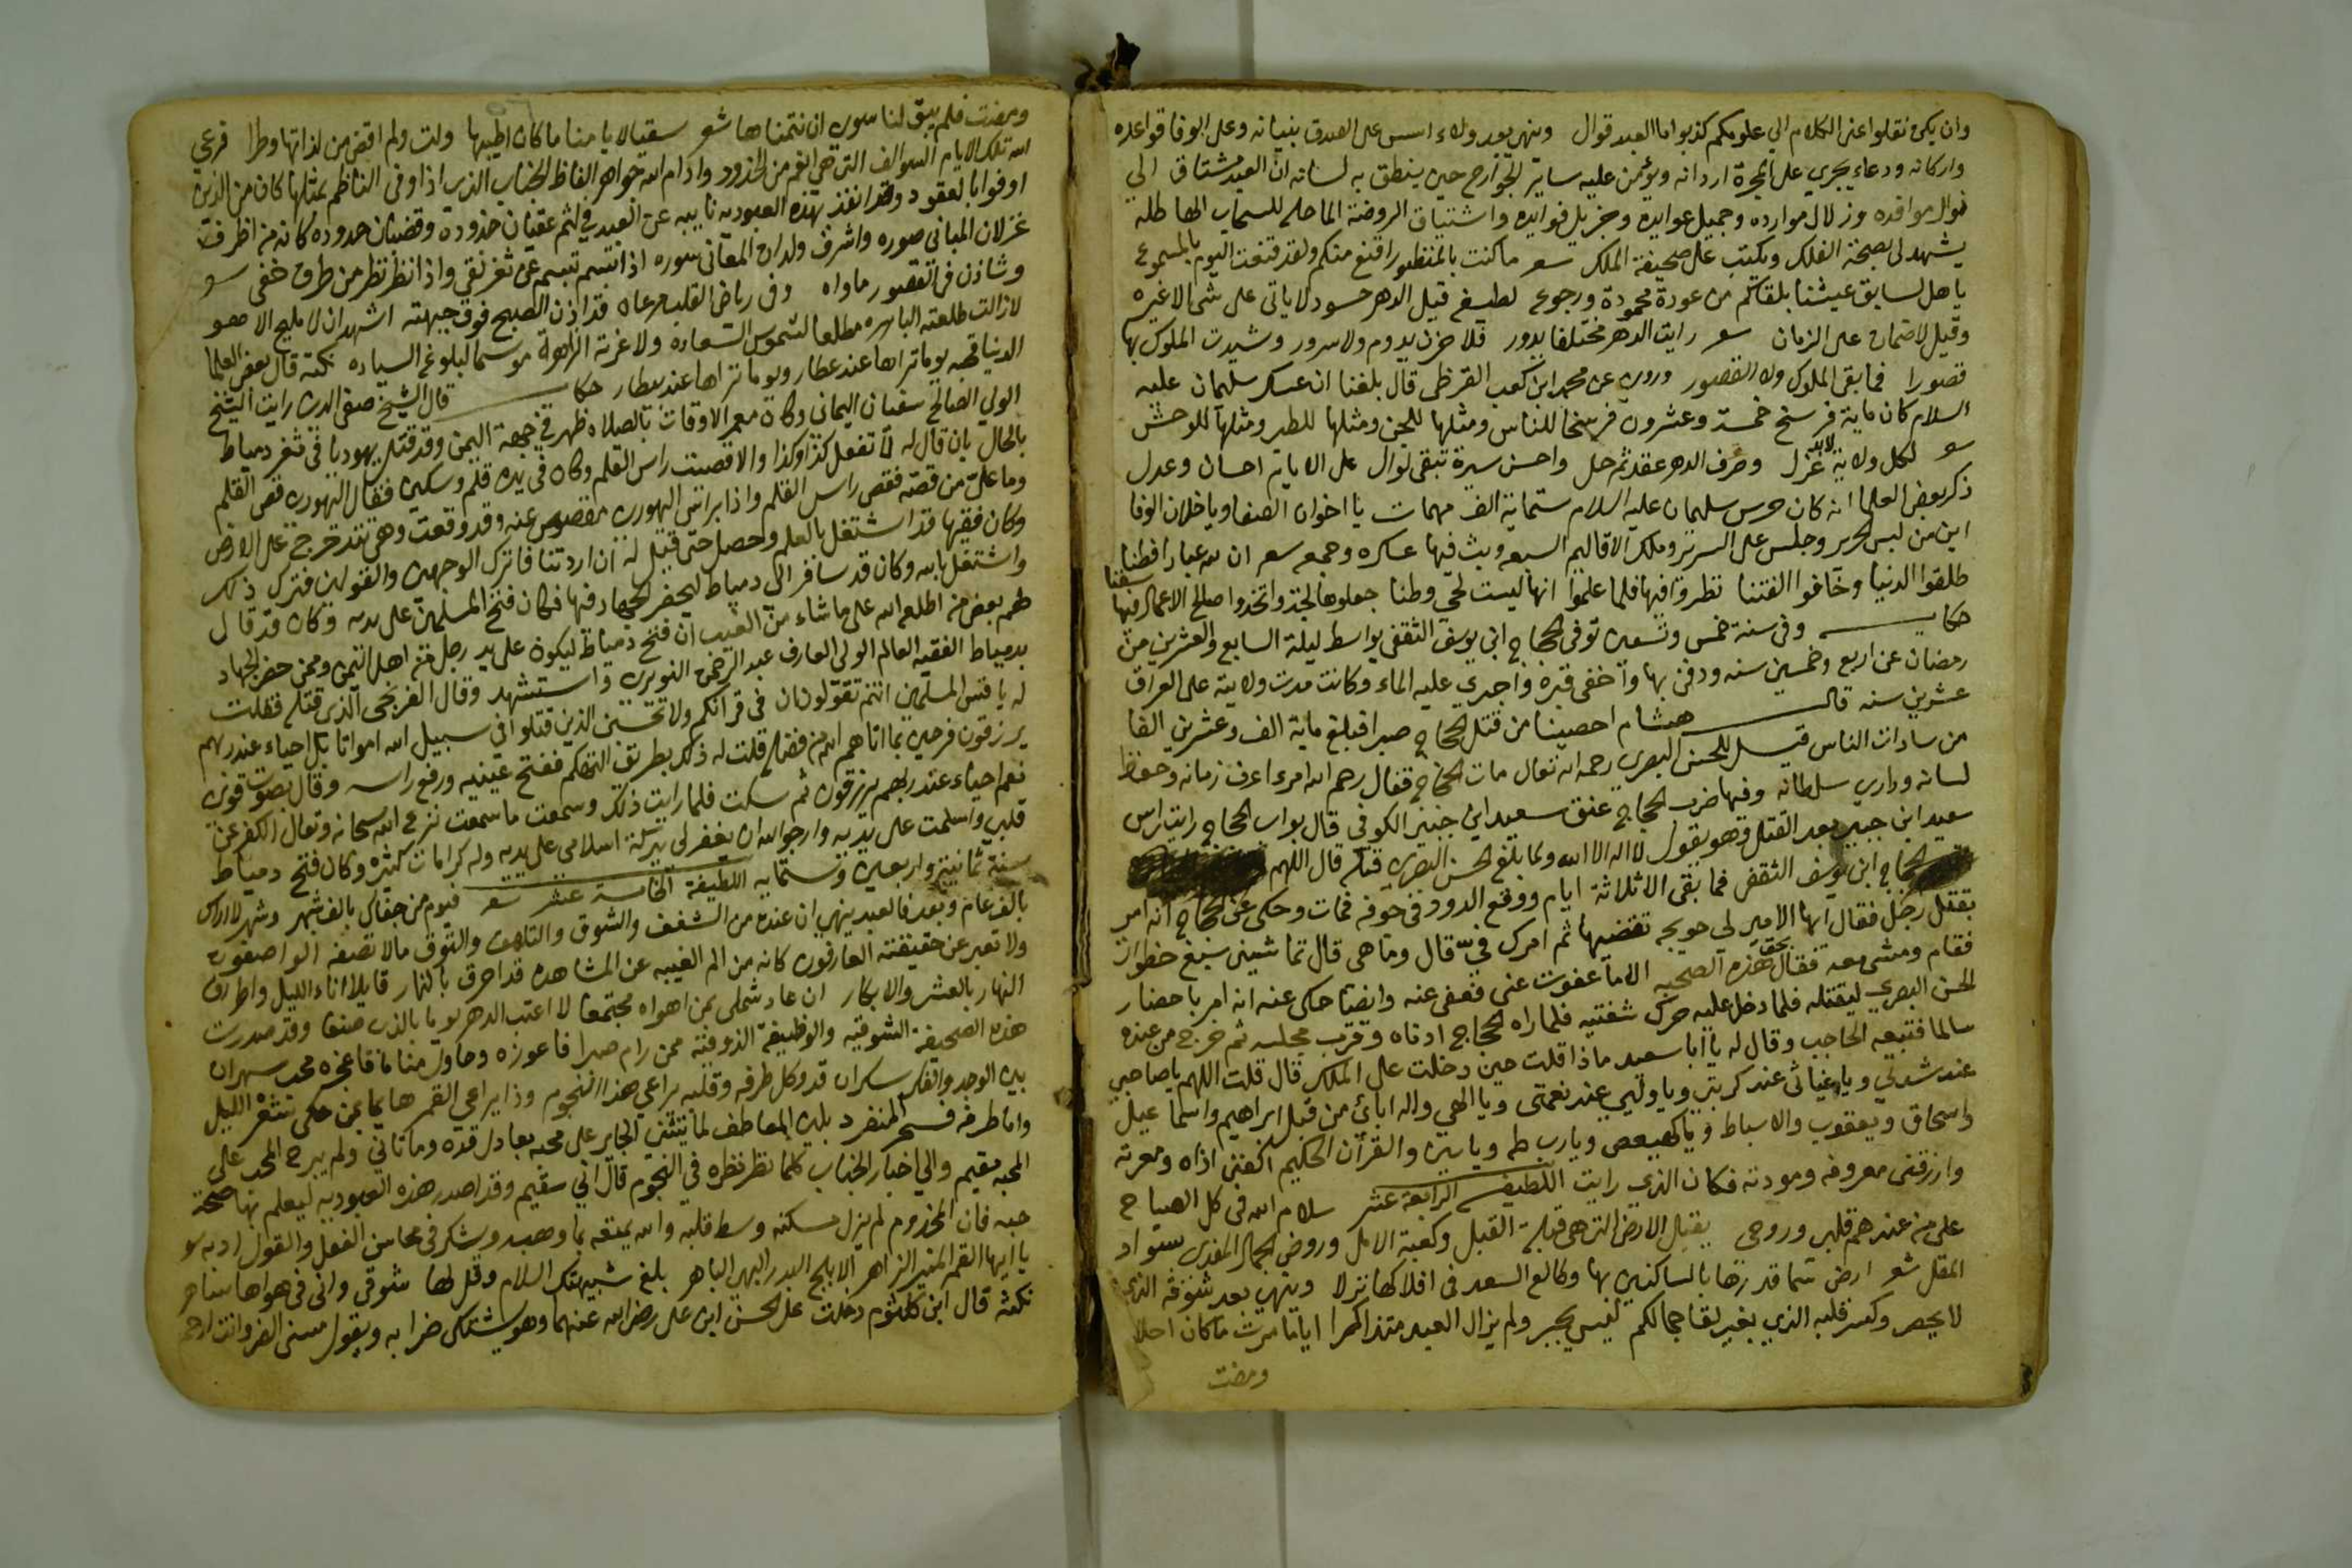 وان يكن نقلوا عني الكلام الي علومكم كذبوا ما العبد قوال وينهي بعد ولاء اسس على الصدق بنيانه وعلى الوفا قواعده
واركانه ودعاء يجري على المجرة اردانه ويؤمن عليه ساير الجوارح حين ينطق به لسانه ان العبد مشتاق الي
موافده وزلال موارده وجميل عوايده وجزيل فوايده واشتياق الروضة الماحله للسحاب الهاطله
يشهد لي بصحة الفلك ويكتب على صحيفة الملك شعر ما كنت بالمنظور اقنع منكم ولقد قنعت اليوم بالمسموع
يا هل لسابق عيشنا بلقائكم من عودة محمودة ورجوع لطيفه قيل الدهر حسود لا ياتي على شي الا غيره
وقيل لا ضمان على الزمان شعر رايت الدهر مختلفا يدور فلا حزن يدوم ولا سرور وشيدت الملوك بها
قصورا فما بقي الملوك ولا القصور وروي عن محمد ابن كعب القرظي قال بلغنا ان عسكر سليمان عليه
السلام كان ماية فرسخ خمسة وعشرون فرسخا للناس ومثلها للجن ومثلها للطير ومثلها للوحش
شعر لكل ولاية لابد عزل وصرف الدهر عقد ثم حل واحسن سيرة تبقى لوال على الايام احسان وعدل
ذكر بعض العلما انه كان حرس سليمان عليه السلام ستماية الف مهمات يا اخوان الصفا ويا خلان الوفا
اين من لبس الحرير وجلس على السرير وملك الاقاليم السبعه وبث فيها عساكره وجمعه شعر ان لله عبادا فطنا
طلقوا الدنيا وخافوا الفتنا نظروا فيها فلما علموا انها ليست لحي وطنا جعلوها لجة واتخذوا صالح الاعمال فيها سفنا
حكايه وفي سنة خمس وتسعين توفي الحجاج ابن يوسف الثقفي بواسط ليلة السابع والعشرين من
رمضان عن اربع وخمسين سنه ودفن بها واخفي قبره واجري عليه الماء وكانت مدت ولايته على العراق
عشرين سنه قال هشام احصينا من قتل الحجاج صبرا فبلغ ماية الف وعشرين الفا
من سادات الناس قيل للحسن البصري رحمه الله تعالى مات الحجاج فقال رحم الله امرء اعرف زمانه وحفظ
لسانه وداري سلطانه وفيها ضرب الحجاج عنق سعيد ابن جبير الكوفي قال بواب الحجاج رايت راس
سعيد ابن جبير بعد القتل وهو يقول لا اله الا الله ولما بلغ الحسن البصري قتله قال اللهم
الحجاج ابن يوسف الثقفي فما بقي الا ثلاثة ايام ووقع الدود في جوفه فمات وحكى عن الحجاج انه امر
بقتل رجل فقال ايها الامير لي حويجه تقضيها ثم امرك في قال وما هي قال تماشيني سبع خطوات
فقام ومشى معه فقال بحق هذه الصحبه الا ما عفوت عني فعفى عنه وايضا حكى عنه انه امر باحضار
الحسن البصري ليقتله فلما دخل عليه حرك شفتيه فلما راه الحجاج ادناه وقرب مجلسه ثم خرج من عنده
سالما فتبعه الحاجب وقال له يا ابا سعيد ماذا قلت حين دخلت على الملك قال قلت اللهم يا صاحبي
عند شدتي ويا غياثي عند كربتي ويا وليي عند نعمتي ويا الهي واله ابائي من قبل ابراهيم واسماعيل
واسحاق ويعقوب والاسباط ويا كهيعص ويا رب طه وياسين والقران الحكيم اكفني اذاه ومعرته
وارزقني معروفه ومودته فكان الذي رايت اللطيفه الرابعة عشر سلام الله في كل الصباح
على من عندهم قلبي وروحي يقبل الارض التي هي قبلة القبل وكعبة الامل وروض الجمال المفدى بسواد
المقل شعر ارض سما قدرها بالساكنين بها وطالع السعد في افلاكها نزلا وينهي بعد شوقه الذي
لا يحصر وكسر قلبه الذي بغير لقا جمالكم ليس يجبر ولم يزال العبد متذاكرا اياما مرت ما كان احلا
ومضت
ومضت فلم يبق لنا سوى ان نتمناها شعر سقيا لايامنا ما كان اطيبها ولت ولم اقض من لذاتها وطرا فرعي
الله تلك الايام السوالف التي هي انعم من الخدود وادام الله جواهر الفاظ الجناب الذي اذا وفى الناظم بمثلها كان من الذين
اوفوا بالعقود وقد انفذ بهذه العبوديه نايبه عن العبد في لثم
غزلان المباني صوره واشرف ولدان المعاني سوره اذا تبسم تبسم عن ثغر نقي واذا نظر نظر من طرف خفي شعر
وشاذن في القصور ماواه وفي رياض القلب مرعاه قد اذن الصبح فوق جبهته اشهد ان لا مليح الا هو
لا زالت طلعته الباهره مطلعا لشموس السعاده ولا غرته الزاهرة موسما لبلوغ السياده نكته قال بعض العلما
الدنيا قحبه يوما تراها عند عطار ويوما تراها عند بيطار حكايه قال الشيخ صفي الدين رايت الشيخ
الولي الصالح سفيان اليماني وكان معمر الاوقات بالصلاه ظهر في جهة اليمن وقد قتل يهوديا في ثغر دمياط
بالحال بان قال له لا تفعل كذا وكذا والا قصيت راس القلم وكان في يده قلم وسكين فقال اليهودي قص القلم
وما علي من قصه فقص راس القلم واذا براس اليهودي مقصوص عنه وقد وقعت وهي تتدحرج على الارض
وكان فقيها قد اشتغل بالعلم وحصل حتى قيل له ان اردتنا فاترك الوجهين والقولين فترك ذلك
واشتغل بالله وكان قد سافر الى دمياط ليحضر الجهاد فيها فكان فتح المسلمين على يديه وكان قد قال
لهم بعض من اطلعه الله على ما شاء من الغيب ان فتح دمياط ليكون على يد رجل من اهل اليمن وممن حضر الجهاد
بدمياط الفقيه العالم الولي العارف عبد الرحمن النويري واستشهد وقال الفرنجي الذي قتله فقلت
له يا قس المسلمين انتم تقولون ان في قرانكم ولا تحسبن الذين قتلوا في سبيل الله امواتا بل احياء عند ربهم
يرزقون فرحين بما اتاهم الله من فضله قلت له ذلك بطريق التهكم ففتح عينيه ورفع راسه وقال بصوت قوي
نعم احياء عند ربهم يرزقون ثم سكت فلما رايت ذلك وسمعت ما سمعت نزع الله سبحانه وتعالى الكفر عن
قلبي واسلمت على يديه وارجو الله ان يغفر لي ببركة اسلامي على يديه وله كرامات كثيره وكان فتح دمياط
سنة ثمانية واربعين وستمايه اللطيفة الخامسة عشر شعر فيوم من جفاك بالف شهر وشهر لا اراك
بالف عام وبعد فالعبد ينهي ان عنده من الشغف والشوق والتلهف والتوق ما لا تصفه الواصفون
ولا تعبر عن حقيقته العارفون كانه من الم الغيبه عن المشاهده قد احرق بالنار قايلا اناء الليل واطراف
النهار بالعشي والابكار ان عاد شملي بمن اهواه مجتمعا لا اعتب الدهر يوما بالذي صنعا وقد صدرت
هذه الصحيفة الشوقيه والوظيفة الذوقيه ممن رام صبرا فاعوزه وحاول مناما فاعجزه محب سهران
بين الوجد والفكر سكران قد وكل طرفه وقلبه يراعي هذا النجوم وذا يراعي القمر
واما طرفه فسحر
المحبه مقيم والي اخبار الجناب كلما نظر نظره في النجوم قال اني سقيم وقد اصدر هذه العبوديه ليعلم بها صحة
حبه فان المخدوم لم يزل مسكنه وسط قلبه والله يمتعه بما وهبه ويشكر في محاسن الفعل والقول ادبه شعر
يا ايها القمر المنير الزاهر الابلج البدر البهي الباهر بلغ شبيهتك السلام وقل لها شوقي واني في هواها ساهر
نكته قال ابن كلثوم دخلت على الحسن ابن علي رضي الله عنهما وهو يشتكي ضرا به ويقول مسني الضر وانت ارحم